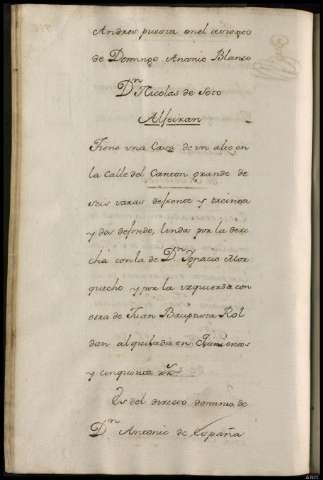 Andres, puesta en el cuerpo
de Domingo Antonio Blanco
Dn Nicolas de Soto
Alfeiran
Tiene una Casa de un alto en
la Calle del Canton grande de
seis varas de frente y treinta
y dos de fondo, linda por la dere
cha con la de Dn Ignacio Mor
quecho y por la yzquierda con
otra de Juan Bauptista Rol
dan alquilada en
y cinquenta Rs
Es del directo dominio de
Dn Antonio de España